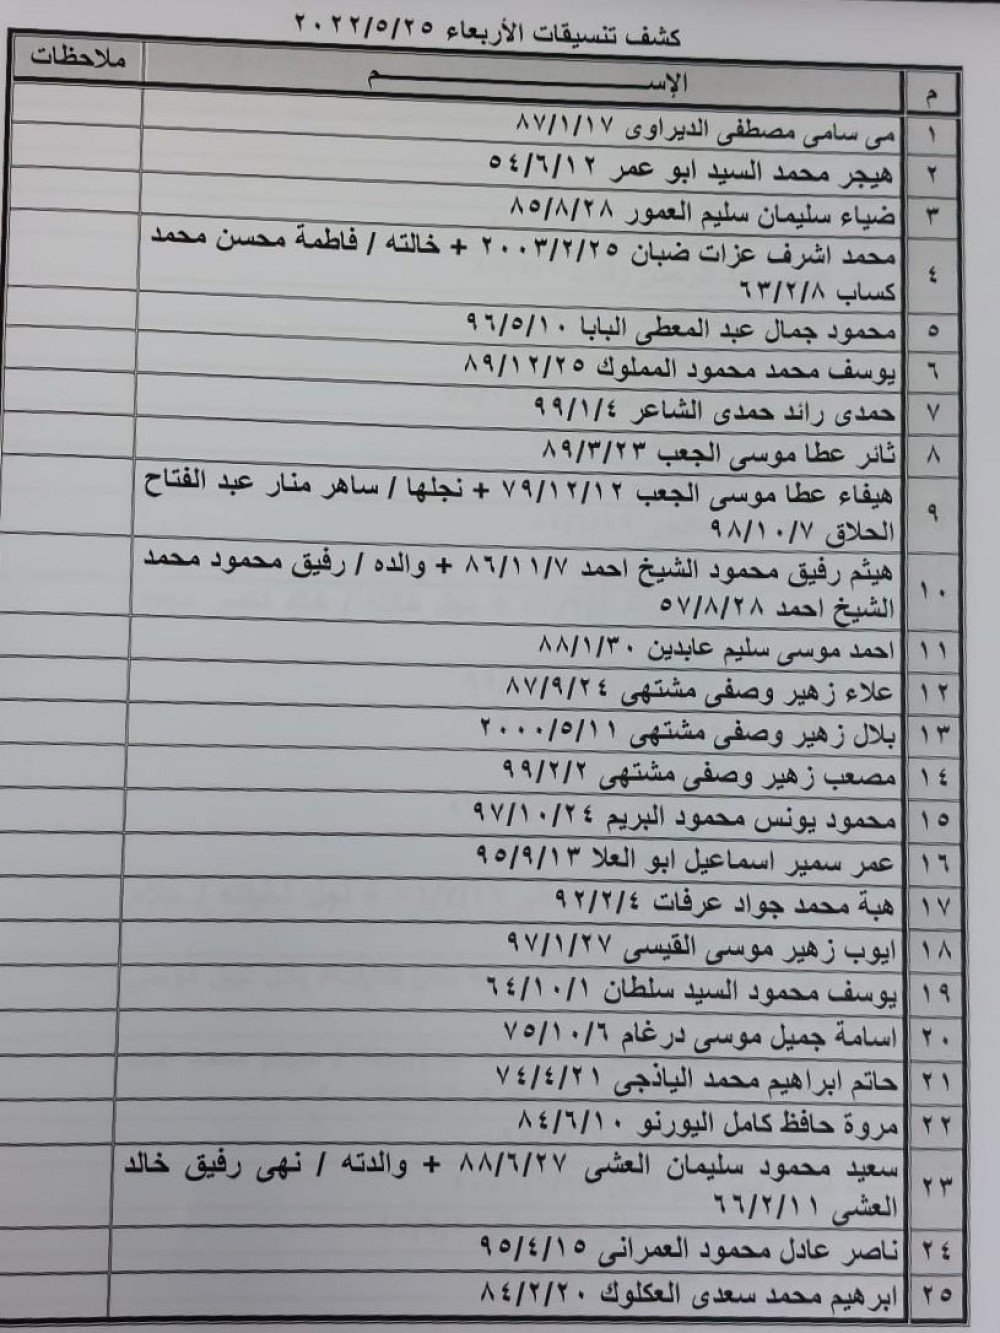 كشف تنسيقات الأربعاء ٢٠٢٢/٥/٢٥
م الإســـــــــــــــم ملاحظات
١ مى سامى مصطفى الديراوى ٨٧/١/١٧
٢ هيجر محمد السيد ابو عمر ٥٤/٦/١٢
٣ ضياء سليمان سليم العمور ٨٥/٨/٢٨
٤ محمد اشرف عزات ضبان ٢٠٠٣/٢/٢٥ + خالته / فاطمة محسن محمد
كساب ٦٣/٢/٨
٥ محمود جمال عبد المعطى البابا ٩٦/٥/١٠
٦ يوسف محمد محمود المملوك ٨٩/١٢/٢٥
٧ حمدى رائد حمدى الشاعر ٩٩/١/٤
٨ ثائر عطا موسى الجعب ٨٩/٣/٢٣
٩ هيفاء عطا موسى الجعب ٧٩/١٢/١٢ + نجلها / ساهر منار عبد الفتاح
الحلاق ٩٨/١٠/٧
١٠ هيثم رفيق محمود الشيخ احمد ٨٦/١١/٧ + والده / رفيق محمود محمد
الشيخ احمد ٥٧/٨/٢٨
١١ احمد موسى سليم عابدين ٨٨/١/٣٠
١٢ علاء زهير وصفى مشتهى ٨٧/٩/٢٤
١٣ بلال زهير وصفى مشتهى ٢٠٠٠/٥/١١
١٤ مصعب زهير وصفى مشتهى ٩٩/٢/٢
١٥ محمود يونس محمود البريم ٩٧/١٠/٢٤
١٦ عمر سمير اسماعيل ابو العلا ٩٥/٩/١٣
١٧ هبة محمد جواد عرفات ٩٢/٢/٤
١٨ ايوب زهير موسى القيسى ٩٧/١/٢٧
١٩ يوسف محمود السيد سلطان ٦٤/١٠/١
٢٠ اسامة جميل موسى درغام ٧٥/١٠/٦
٢١ حاتم ابراهيم محمد اليازجى ٧٤/٤/٢١
٢٢ مروة حافظ كامل اليورنو ٨٤/٦/١٠
٢٣ سعيد محمود سليمان العشى ٨٨/٦/٢٧ + والدته / نهى رفيق خالد
العشى ٦٦/٢/١١
٢٤ ناصر عادل محمود العمرانى ٩٥/٤/١٥
٢٥ ابرهيم محمد سعدى العكلوك ٨٤/٢/٢٠